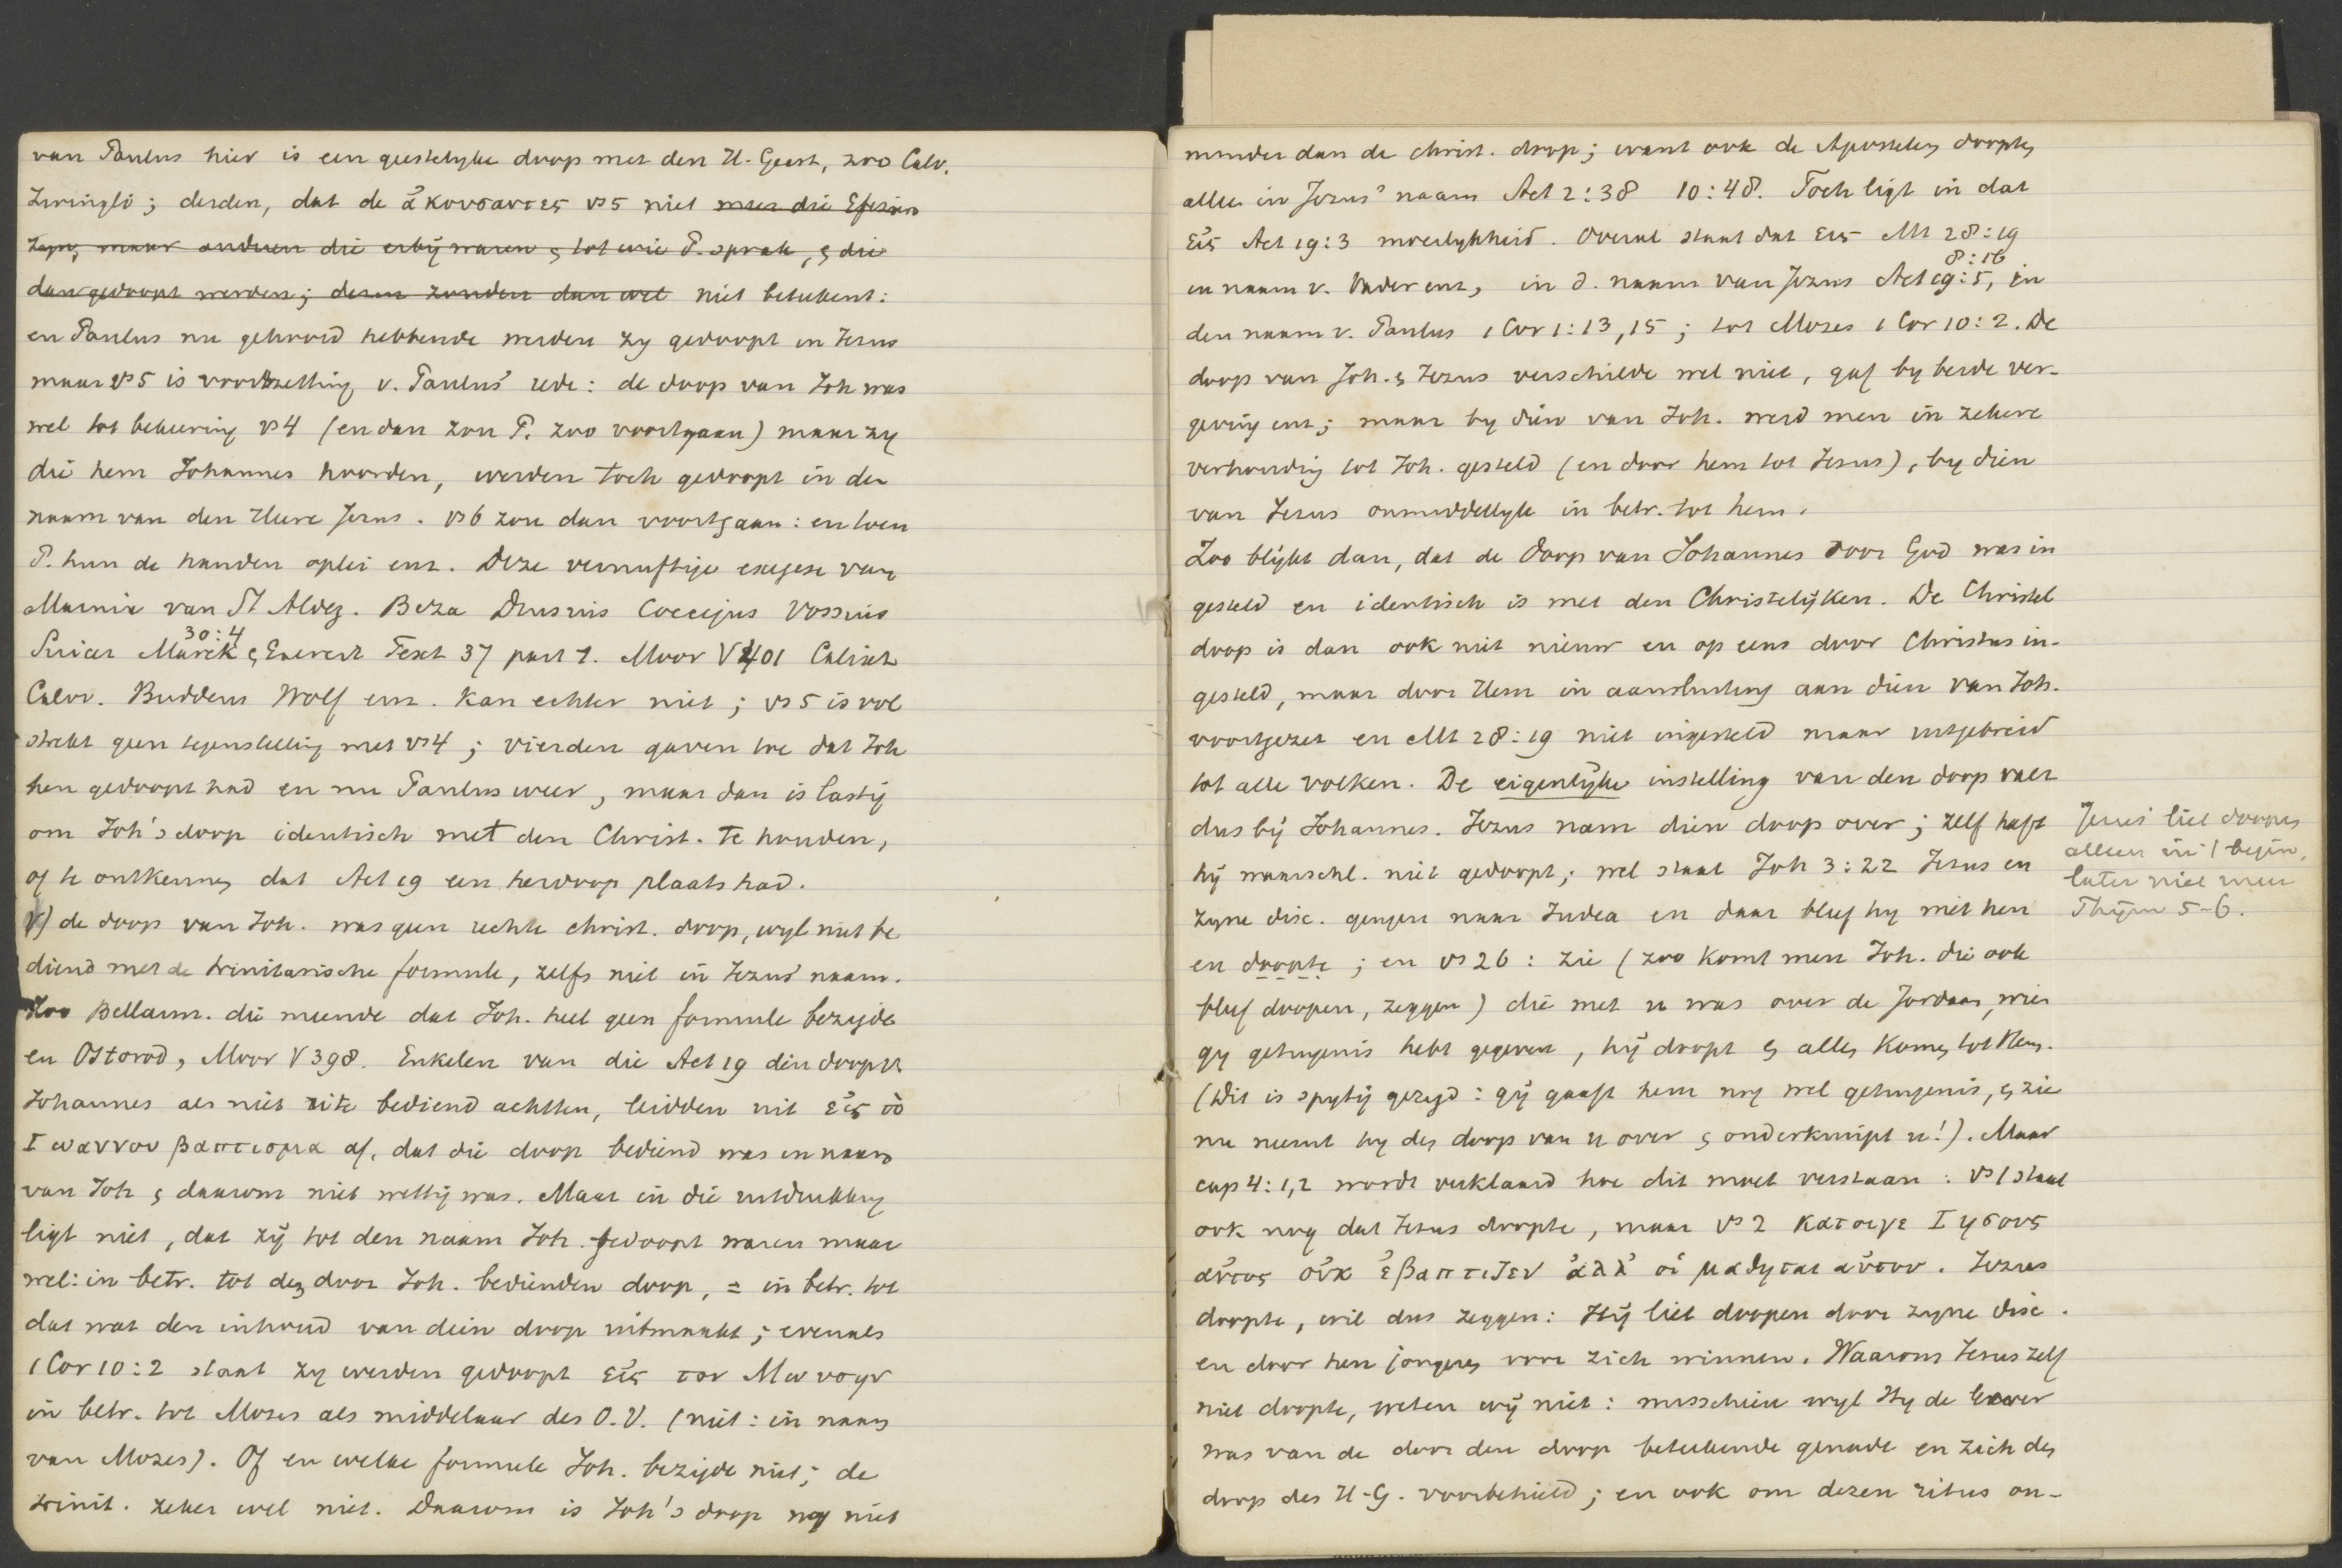 van Paulus hier is een geestelyke doop met den H. Geest, zoo Calv.
Zwingli; derden, dat de ἀκουσαντες vs 5 niet meer die Efesiers
zyn, maar anderen die erbij waren & tot wie P. sprak, & die
dan gedoopt werden; dezen zouden dan wel niet beteekent:
en Paulus nu gehoord hebbende werden zy gedoopt in Jezus
maar vs 5 is voortzetting v. Paulus' rede: de doop van Joh was
wel tot bekeering vs 4 (en dan zou P. zoo voortgaan) maar zy
die hem Johannes hoorden, werden toch gedoopt in den
naam van den Heere Jezus. vs 6 zou dan voortgaan: en toen
P. hun de handen oplei enz. Deze vernuftige exegese van
Marnix van St Aldeg. Beza Drusius Coccejus Vossius
30:4
Suicer Marck & Exercit Text 37 part 1. Moor V 401 Calixt
Calov. Buddeus Wolf enz. Kan echter niet; vs 5 is vol
strekt geen tegenstelling met vs 4; vierden gaven toe dat Joh
hen gedoopt had en nu Paulus weer, maar dan is lastig
om Joh's doop identisch met den Christ. te houden,
of te ontkennen dat Act 19 een herdoop plaats had.
de doop van Joh. was geen echte christ. doop, wyl niet be
diend met de trinitarische formule, zelfs niet in Jezus' naam.
Zoo Bellarm. die meende dat Joh. heel geen formule bezigde
en Ostorod, Moor V 398. Enkelen van die Act 19 den doop v.
Johannes als niet rite bediend achtten, leidden uit εἰς το
Ιωαννου βαπτισμα af, dat die doop bediend was in naam
van Joh & daarom niet wettig was. Maar in die uitdrukking
ligt niet, dat zij tot den naam Joh. gedoopt waren maar
wel: in betr. tot den door Joh. bedienden doop, = in betr. tot
dat wat den inhoud van dien doop uitmaakt; evenals
1 Cor 10:2 staat zy werden gedoopt εἰς τον Μωυσην
in betr. tot Mozes als middelaar des O.V. (niet: in naam
van Mozes). Of en welke formule Joh. bezigde niet; de
trinit. zeker wel niet. Daarom is Joh's doop nog niet
minder dan de christ. doop; want ook de Apostelen doopten
alleen in Jezus' naam Act 2:38 10:48. Toch ligt in dat
εἰς Act 19:3 moeilykheid. Overal staat dat εις Mt 28:19
8:16
in naam v. Vader enz, in d. naam van Jezus Act 19:5, in
den naam v. Paulus 1 Cor 1:13,15; tot Mozes 1 Cor 10:2. De
doop van Joh. & Jezus verschilde wel niet, gaf by beide ver-
geving enz; maar by dien van Joh. werd men in zekere
verhouding tot Joh. gesteld (en door hem tot Jezus), by dien
van Jezus onmiddellyk in betr. tot hem.
Zoo blijkt dan, dat de doop van Johannes door God was in
gesteld en identisch is met den Christelijken. De Christel
doop is dan ook niet nieuw en op eens door Christus in-
gesteld, maar door Hem in aansluiting aan dien van Joh.
voortgezet en Mt 28:19 niet ingesteld maar uitgebreid
tot alle volken. De eigenlijke instelling van den doop valt
dus bij Johannes. Jezus nam dien doop over; zelf heeft
hij waarschl. niet gedoopt; wel staat Joh 3:22 Jezus en
zyne disc. gingen naar Judea en daar bleef hy met hen
en doopte; en vs 26: zie (zoo komt men Joh. die ook
bleef doopen, zeggen) die met u was over de Jordaan, wien
gy getuigenis hebt gegeven, hij doopt & allen komen tot Hem.
(Dit is spytig gezegd: gij gaaft hem nog wel getuigenis, & zie
nu neemt hy den doop van u over & onderkruipt u!). Maar
cap 4:1,2 wordt verklaard hoe dit moet verstaan: vs 1 staat
ook nog dat Jezus doopte, maar vs 2 καιτοιγε Ιησους
αὐτος οὐκ ἐβαπτιζεν ἀλλ' οἱ μαθηται αὐτου. Jezus
doopte, wil dus zeggen: Hij liet doopen door zyne disc.
en door hen jongeren voor zich winnen. Waarom Jezus zelf
niet doopte, weten wij niet: misschien wyl Hy de Gever
was van de door den doop beteekende genade en zich den
doop des H-G. voorbehield; en ook om dezen ritus on-
Jezus liet doopen
alleen in 't begin,
later niet meer
Thijm 5-6.